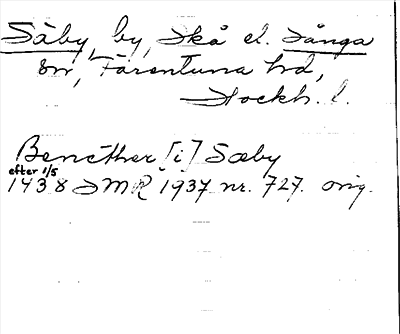 Säby, by, Skå el. Sånga
snr, Färentuna hd,
Stockh. l.
Benæther [i] Sæby
efter 1/5
1438 SMR 1937 nr. 727. orig.